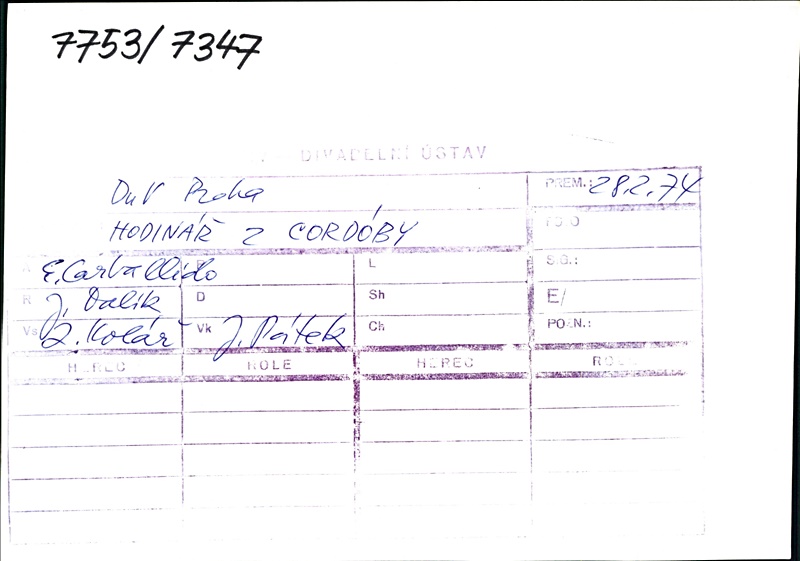 7753/7347
DIVADELNÍ ÚSTAV
DnV Praha PREM.: 28.2.74
HODINÁŘ z CORDÓBY FOTO
A E. Carballido P L SIG.:
R J. Dalík D Sh E/
Vs Z. Kolář Vk J. Pátek Ch POZN.:
HEREC ROLE HEREC ROLE